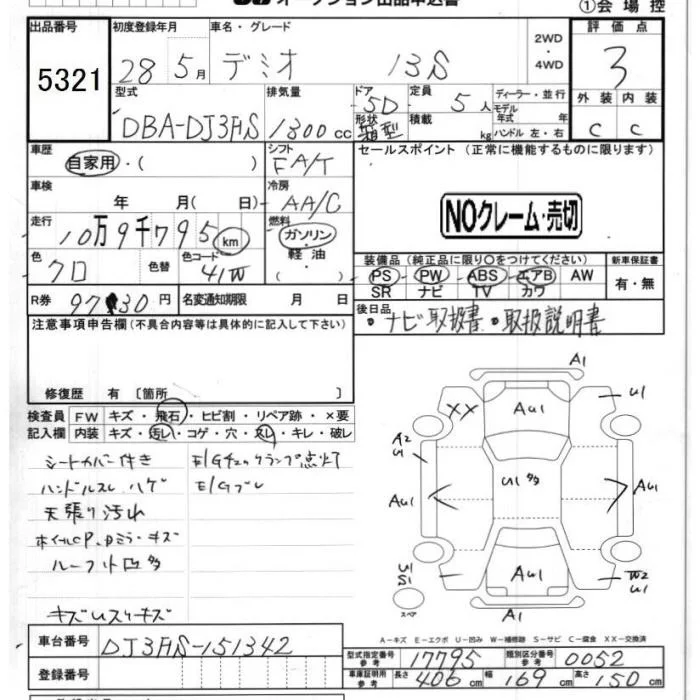 オークション出品申込書
①会場控
出品番号 初度登録年月 車名・グレード 2WD 評価点
5321 28 5月 デミオ 13S ・4WD 3
型式 排気量 ドア 定員 ディーラー・並行 外装 内装
DBA-DJ3FS 1300cc 5D 5人 モデル年式 年 C C
形状 箱型 積載 kg ハンドル 左・右
車歴 シフト セールスポイント (正常に機能するものに限ります)
自家用・( ) FA/T
車検 冷房
年 月(日) AA/C NOクレーム・売切
走行 燃料
10万9千795km ガソリン・
色 色替 色コード 軽油・
クロ 41W 装備品(純正品に限り○をつけてください) 新車保証書
PS PW ABS エアB AW 有・無
SR ナビ TV カワ
R券 円 名変通知期限 月 日
後日品
・ナビ取扱書・取扱説明書
注意事項申告欄(不具合内容等は具体的に記入して下さい)
修復歴 有〔箇所 〕
検査員 FW キズ・飛石・ヒビ割・リペア跡・×要
記入欄 内装 キズ・汚レ・コゲ・穴・スレ・キレ・破レ
シートカバー付き E/Gチェックランプ点灯
ハンドルスレ ハゲ E/Gブレ
天張り汚れ
キズ
キズUスリキズ
A1
XX AU1 U1
A2
U1
AU1 U1多 AU1
U1
S1 AU1 W2
U1
スペア
A1
A−キズ E−エクボ U−凹み W−補修跡 S−サビ C−腐食 XX−交換済
車台番号 DJ3FS-151342
型式指定番号 参考 17795 類別区分番号 参考 0052
登録番号 車庫証明用 参考 長さ 406cm 幅 169cm 高さ 150cm